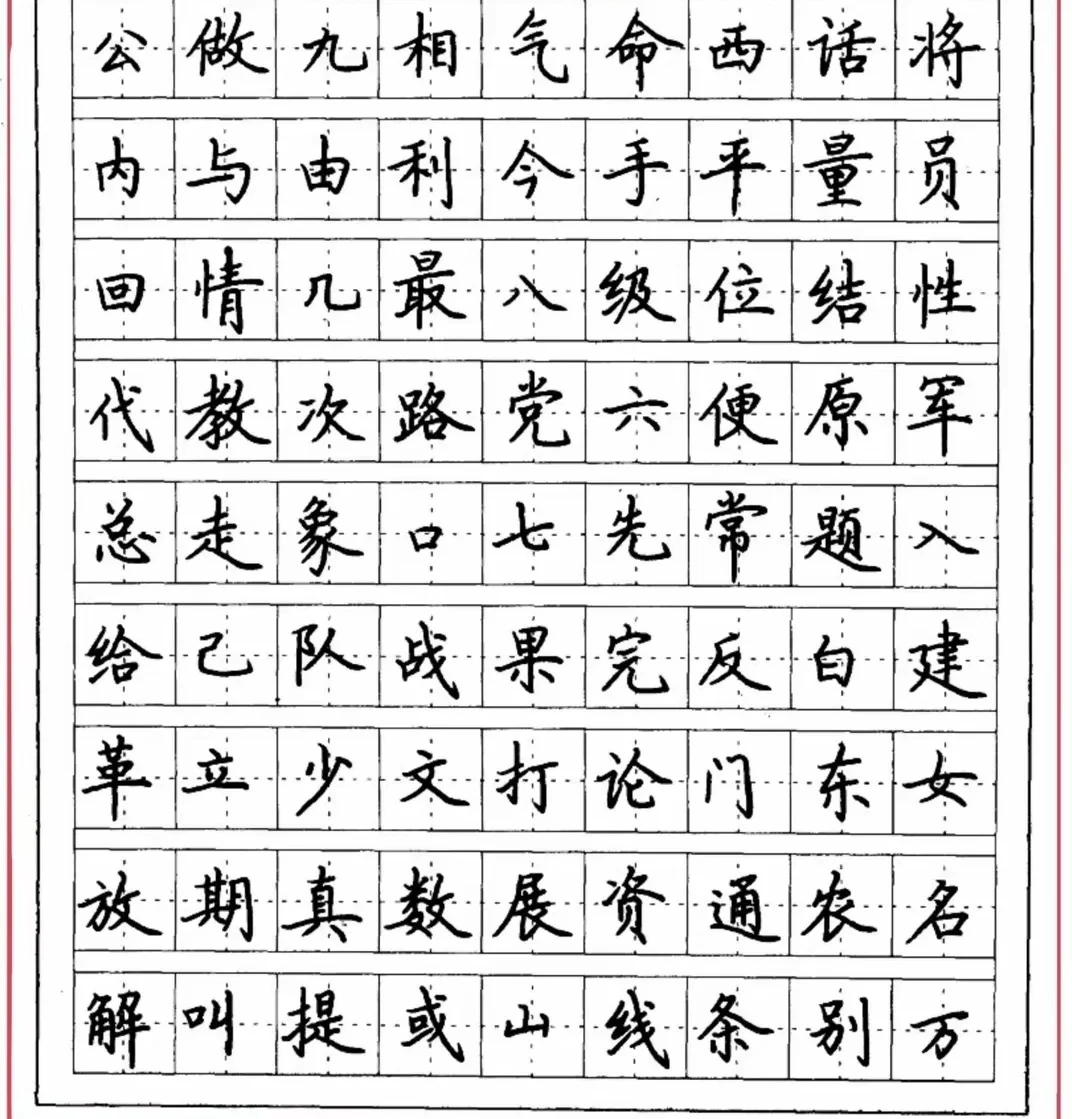 公做九相气命西话将
内与由利今手平量员
回情几最八级位结性
代教次路党六便原军
总走象口七先常题入
给己队战果完反白建
革立少文打论门东女
放期真数展资通农名
解叫提或山线条别万